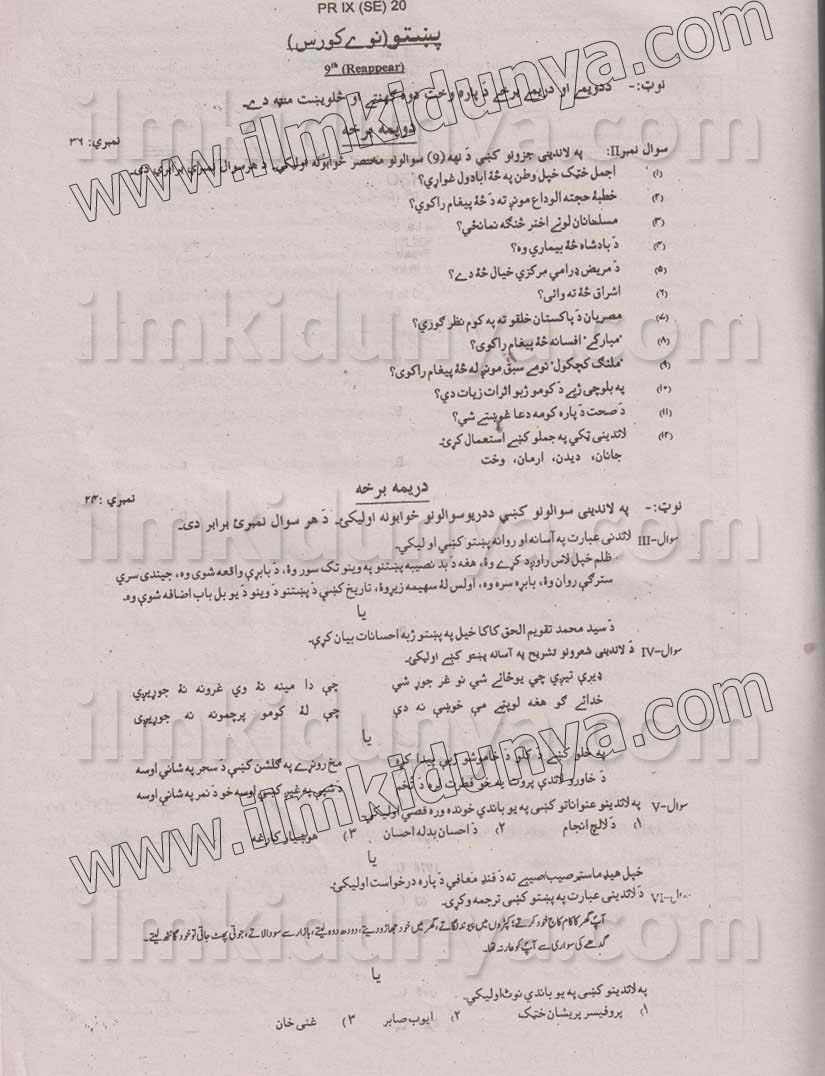 PR IX (SE) 20
پښتو (نوے کورس)
9th (Reappear)
نوټ:- ددویمې او دریمې برخې د پاره وخت دوه ګهنټې او څلویښت منټه دے۔
دویمه برخه
نمبرې: ۳۶
سوال نمبر II: په لاندینی جزونو کښې د نهه (9) سوالونو مختصر ځوابونه اولیکې۔ د هر سوال نمبرې برابرې دی۔
(۱) اجمل خټک خپل وطن په څۀ ابادول غواړي؟
(۲) خطبۀ حجته الوداع مونږ ته د څۀ پیغام راکوي؟
(۳) مسلمانان لوئے اختر څنګه نمانځي؟
(۴) د بادشاه څۀ بیماري وه؟
(۵) د مریض ډرامې مرکزي خیال څۀ دے؟
(۶) اشراق څۀ ته وائی؟
(۷) مصریان د پاکستان خلقو ته په کوم نظر ګوري؟
(۸) 'مبارکے' افسانه څۀ پیغام راکوی؟
(۹) 'ملنګ کچکول' نومے سبق مونږ له څۀ پیغام راکوی؟
(۱۰) په بلوچی ژبے د کومو ژبو اثرات زیات دي؟
(۱۱) د صحت د پاره کومه دعا غوښتے شي؟
(۱۲) لاندینی ټکي په جملو کښے استعمال کړئ۔
جانان، دیدن، ارمان، وخت
دریمه برخه
نمبرې: ۲۴
نوټ:- په لاندینی سوالونو کښې ددریو سوالونو ځوابونه اولیکئ۔ د هر سوال نمبرئ برابر دی۔
سوال-III لاندنی عبارت په آسانه او روانه پښتو کښې اولیکې۔
ظلم خپل لاس راوړد کړے وۀ، هغه د بد نصیبه پښتنو په وینو تک سور وۀ، د بابړې واقعه شوی وه، چیندی سرې
سترګې روان وۀ، بابړه سره وه، اولس لۀ سهیمه زیړ وۀ، تاریخ کښې د پښتنو د وینو د یو بل باب اضافه شوې وه۔
یا
د سید محمد تقویم الحق کاکا خیل په پښتو ژبه احسانات بیان کړې۔
سوال-IV د لاندینی شعرونو تشریح په آسانه پښتو کښے اولیکئ۔
ډیرې تیږې چې یوځائے شي نو غر جوړ شي چې دا مینه نۀ وي غرونه نۀ جوړیږي
خدائے ګو هغه لوپټے مې خوښې نه دې چې لۀ کومو پرچمونه نه جوړیږی
یا
په خلو کښې د کلو د خاموشو ژبې پیدا کړه مخ روڼے په ګلشن کښې د سحر په شانې اوسه
د خاورو لاندې پروت یه خو فطرت لره د تخم د شپې په غیږ کښې اوسه خو د نمر په شانې اوسه
سوال-V په لاندینو عنواناتو کښی په یو باندې خونده وره قصې اولیکې۔
۱) د لالچ انجام ۲) د احسان بدله احسان ۳) هوښیار کارغه
یا
خپل هیډ ماسټر صیب اصیبے ته د فنډ معافي د پاره درخواست اولیکئ۔
سوال-VI د لاندینی عبارت په پښتو کښې ترجمه وکړی۔
آپؐ گھر کا کام کاج خود کرتے، کپڑوں میں پیوند لگاتے، گھر میں خود جھاڑو دیتے، دودھ دوہ لیتے، بازار سے سودا لاتے، جوتی پھٹ جاتی تو خود گانٹھ لیتے۔
گدھے کی سواری سے آپؐ کو عار نہ تھا۔
یا
په لاندینو کښی په یو باندې نوټ اولیکې۔
۱) پروفیسر پریشان خټک ۲) ایوب صابر ۳) غنی خان
www.ilmkidunya.com
ilmkidunya.com
ilmkidunya.com
www.ilmkidunya.com